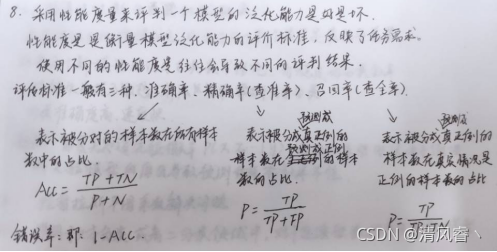 8. 采用性能度量来评判一个模型的泛化能力是好是坏.
性能度量是衡量模型泛化能力的评价标准,反映了任务需求。
使用不同的性能度量往往会导致不同的评判结果.
评估标准一般有三种. 准确率、精确率(查准率)、召回率(查全率).
表示被分对的样本数在所有样本
数中的占比.
Acc = TP + TN / P + N
错误率: 即 1 - ACC
表示被分成真正例的
预测成正例
样本数在的样本
数的占比.
P = TP / TP + FP
预测
表示被分成真正例的
样本数在真实情况是
正例的样本数的占比
P = TP
CSDN @清风睿